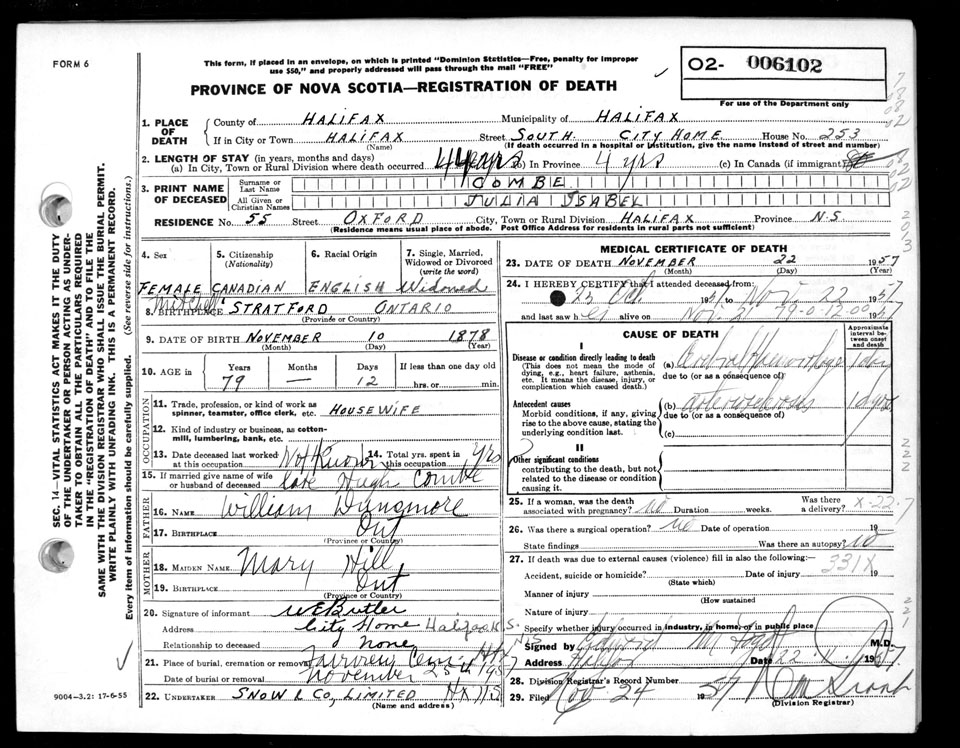 FORM 6
This form, if placed in an envelope, on which is printed "Dominion Statistics—Free, penalty for improper
use $50," and properly addressed will pass through the mail "FREE"
PROVINCE OF NOVA SCOTIA—REGISTRATION OF DEATH
O2- 006102
For use of the Department only
SEC. 14—VITAL STATISTICS ACT MAKES IT THE DUTY
OF THE UNDERTAKER OR PERSON ACTING AS UNDER-
TAKER TO OBTAIN ALL THE PARTICULARS REQUIRED
IN THE "REGISTRATION OF DEATH" AND TO FILE THE
SAME WITH THE DIVISION REGISTRAR WHO SHALL ISSUE THE BURIAL PERMIT.
WRITE PLAINLY WITH UNFADING INK. THIS IS A PERMANENT RECORD.
Every item of information should be carefully supplied. (See reverse side for instructions.)
1. PLACE OF DEATH
County of HALIFAX Municipality of HALIFAX
If in City or Town HALIFAX Street SOUTH. CITY HOME House No. 253
(Name) (If death occurred in a hospital or institution, give the name instead of street and number)
2. LENGTH OF STAY (in years, months and days)
(a) In City, Town or Rural Division where death occurred 4 years (b) In Province 4 yrs (c) In Canada (if immigrant)
3. PRINT NAME OF DECEASED
Surname or Last Name COMBE
All Given or Christian Names JULIA ISABEL
RESIDENCE No. 55 Street OXFORD City, Town or Rural Division HALIFAX Province N.S.
(Residence means usual place of abode. Post Office Address for residents in rural parts not sufficient)
4. Sex FEMALE
5. Citizenship (Nationality) CANADIAN
6. Racial Origin ENGLISH
7. Single, Married, Widowed or Divorced (write the word) Widowed
8. BIRTHPLACE Mitchell STRATFORD ONTARIO
(Province or Country)
9. DATE OF BIRTH NOVEMBER 10 1878
(Month) (Day) (Year)
10. AGE in Years 79 Months — Days 12 If less than one day old hrs. or min.
OCCUPATION
11. Trade, profession, or kind of work as spinner, teamster, office clerk, etc. HOUSEWIFE
12. Kind of industry or business, as cotton-mill, lumbering, bank, etc.
13. Date deceased last worked at this occupation Not Known 14. Total yrs. spent in this occupation yrs
15. If married give name of wife or husband of deceased late Hugh Combe
FATHER
16. NAME William Dungmore
17. BIRTHPLACE Ont
(Province or Country)
MOTHER
18. MAIDEN NAME Mary Hill
19. BIRTHPLACE Ont
(Province or Country)
20. Signature of informant WE Butler
Address City Home Halifax N.S.
Relationship to deceased None
21. Place of burial, cremation or removal Fairview Cem. Hfx
Date of burial or removal November 25th 1957
22. UNDERTAKER SNOW & CO, LIMITED HX NS
(Name and address)
9004—3.2: 17-6-55
MEDICAL CERTIFICATE OF DEATH
23. DATE OF DEATH NOVEMBER 22 1957
(Month) (Day) (Year)
24. I HEREBY CERTIFY that I attended deceased from:
23 Oct 1957 to Nov. 22 1957
and last saw her alive on Nov. 21 79-0-12-00 1957
CAUSE OF DEATH
Approximate interval between onset and death
I
Disease or condition directly leading to death
(This does not mean the mode of dying, e.g., heart failure, asthenia, etc. It means the disease, injury, or complication which caused death.)
(a) Cerebral Hemorrhage 1 day
due to (or as a consequence of)
Antecedent causes
Morbid conditions, if any, giving rise to the above cause, stating the underlying condition last.
(b) arteriosclerosis 10 yrs
due to (or as a consequence of)
(c)
II
Other significant conditions
contributing to the death, but not related to the disease or condition causing it.
25. If a woman, was the death associated with pregnancy? no Duration weeks. Was there a delivery? X-22-7
26. Was there a surgical operation? no Date of operation 19
State findings Was there an autopsy no
27. If death was due to external causes (violence) fill in also the following:—
Accident, suicide or homicide? Date of injury 331X 19
(State which)
Manner of injury
(How sustained
Nature of injury
Specify whether injury occurred in industry, in home, or in public place
Signed by M.D.
Address Halifax Date 22.11. 1957
28. Division Registrar's Record Number
29. Filed Nov 24 1957
(Division Registrar)